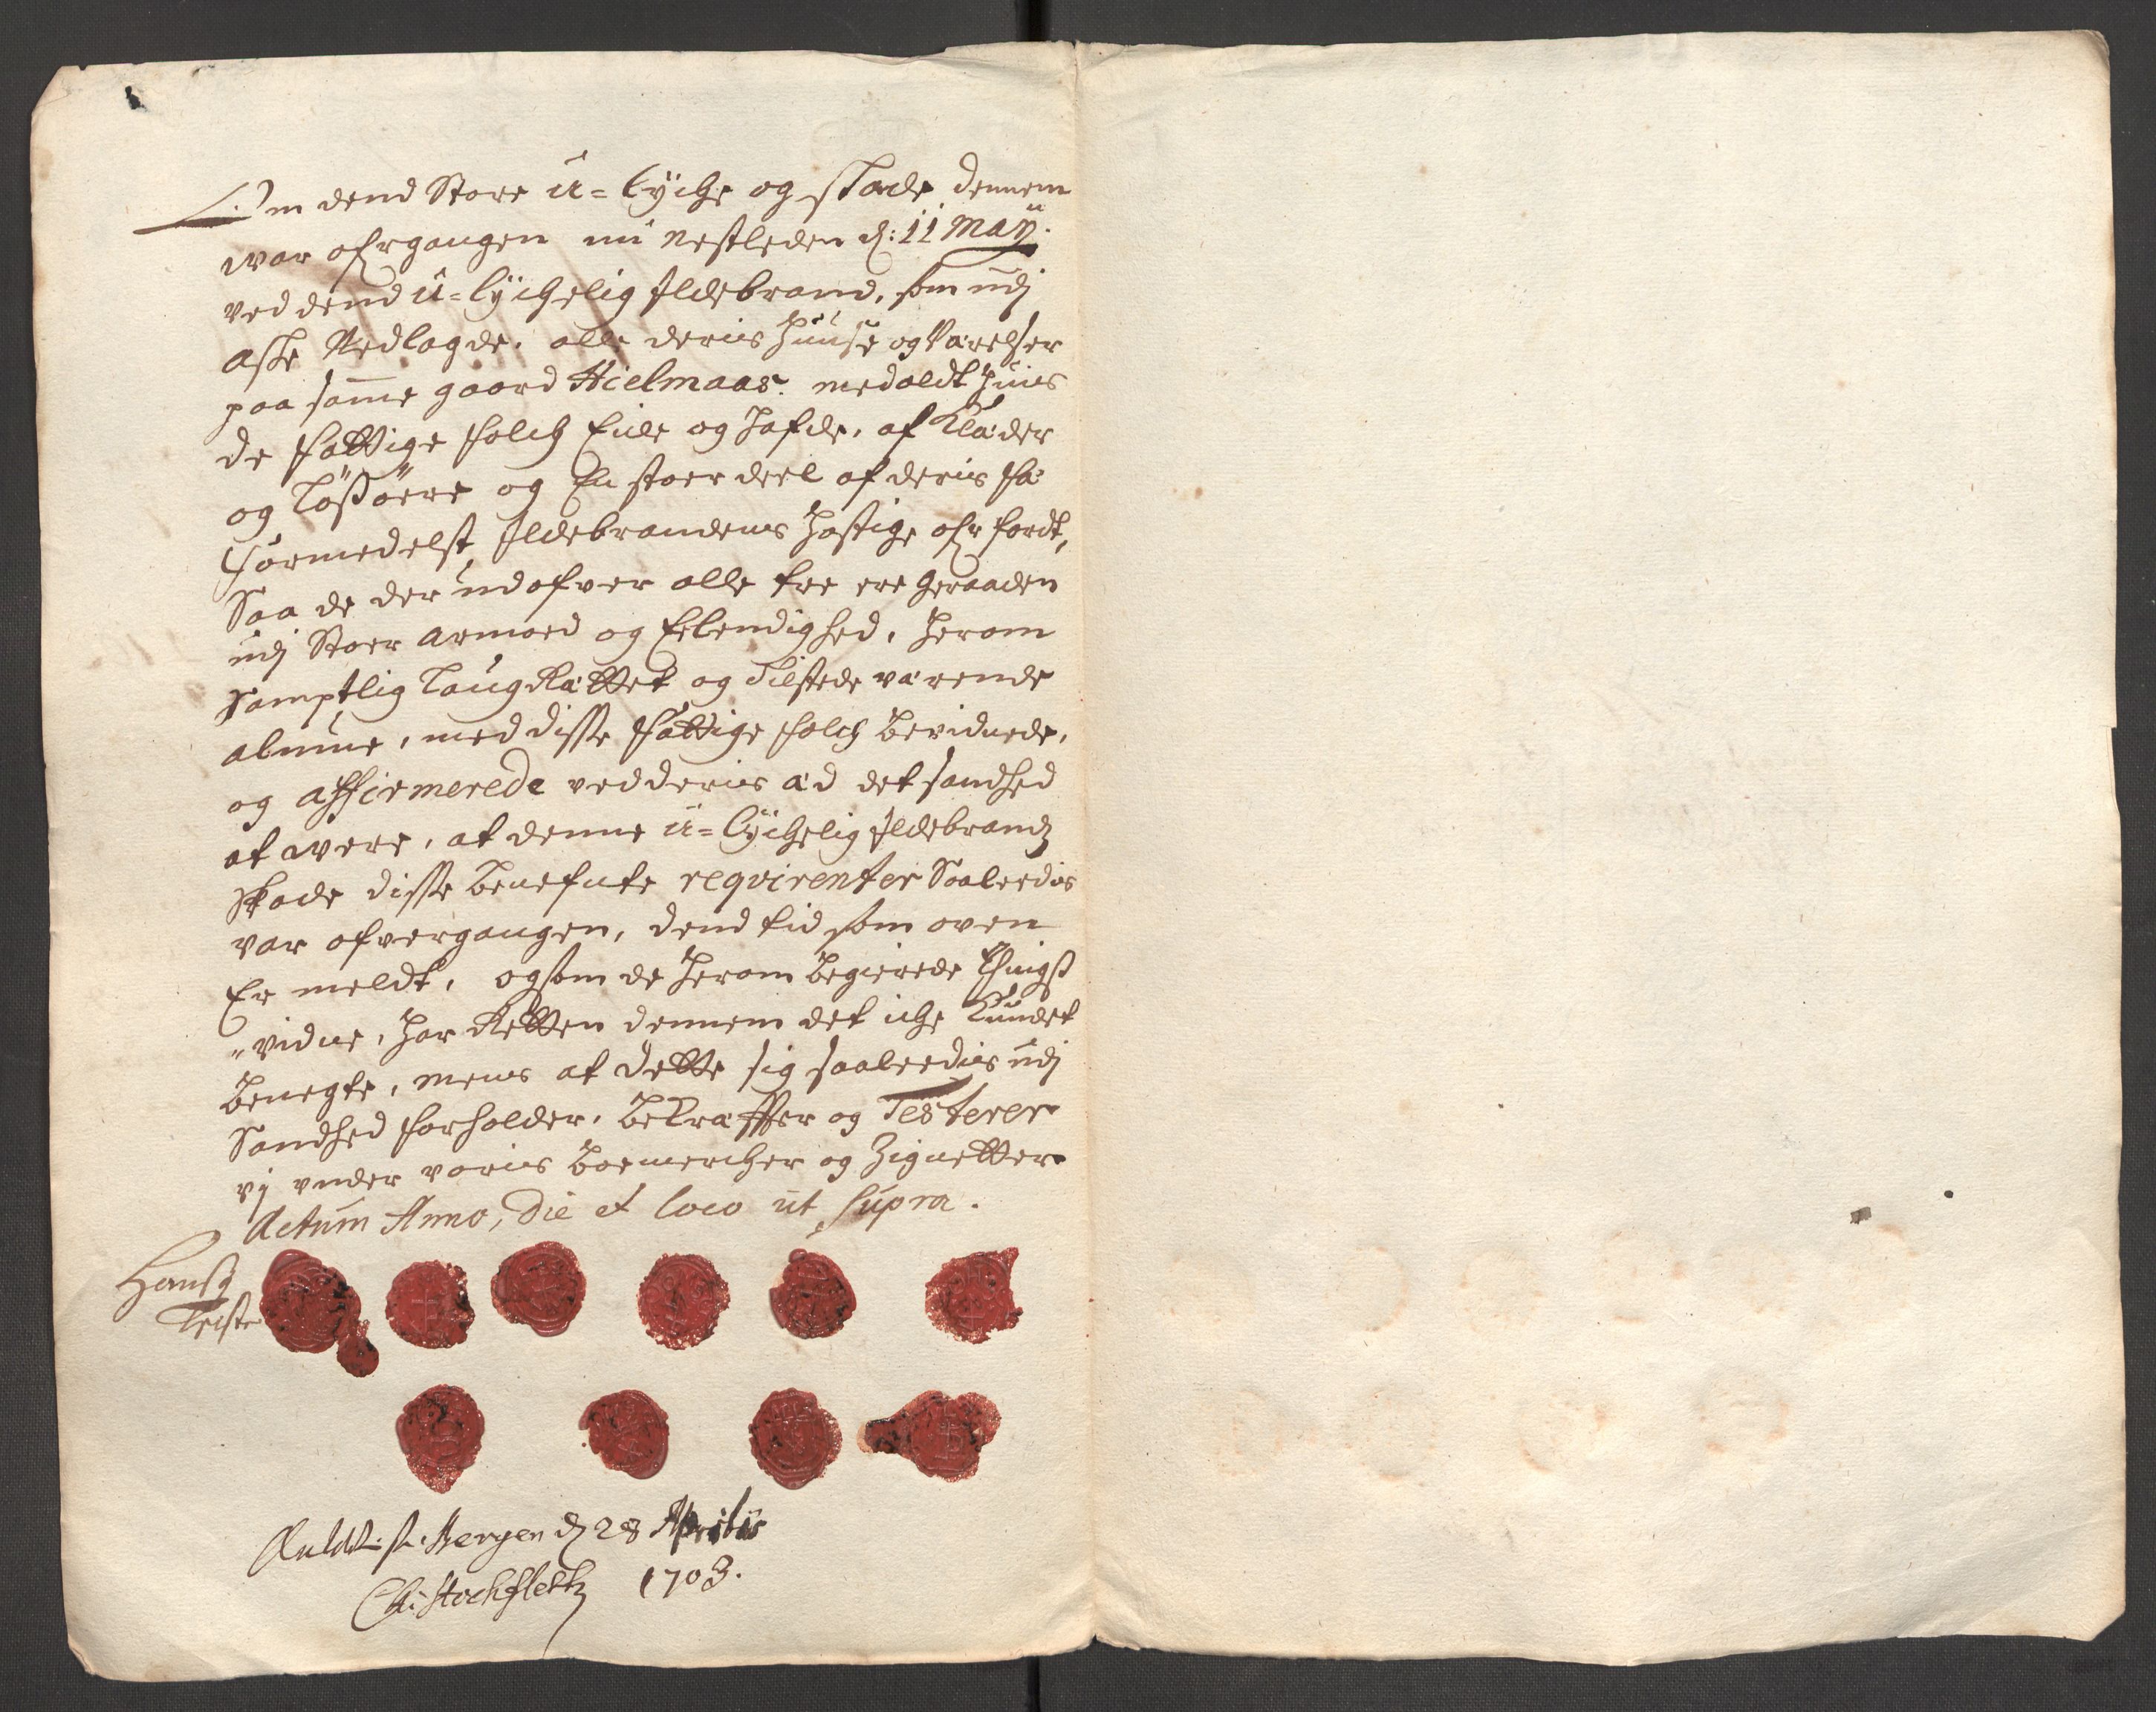 Om dend Store ü-lÿche og skade dennem
war ofrgangen nü nestleden d: 11 Maÿ.
ved dend ü-lÿchelig Ildebrand, som üdj
aske Nedlagde, alle deris Huuse og Værelser
paa samme gaard Hielmaas. med aldt huis
de fattige folch Eide og hafde, af Klæder
og Lößöere og En stoer deel af deris fæ
formedelst Ildebrandens hastige ofrfardt,
Saa de der udofver alle tre ere geraaden
udj Stoer armoed og Eelendighed, herom
samptlig LaugRættet og Tilstede værende
almue, med disse fattige folch bevidnede,
og affirmerede ved deris æd det sandhed
at were, at denne ü-lÿchelig Ildebrandz
skade disse benefnte reqvirenter Saaleedis
var ofvergangen, dend tid som oven
Er meldt, og som de herom begierede Thingß
"vidne, har Retten dennem det iche kundet
benegte, mens at dette sig saaleedis udj
Sandhed forholder, bekræffter og Testerer
vj under voris boemercher og Zignetter
Actum Anno, Die et loco ut supra.
Hanß
Teiste
Anvist Bergen d 28 Aprilis
Chr: Stockfleth 1703.